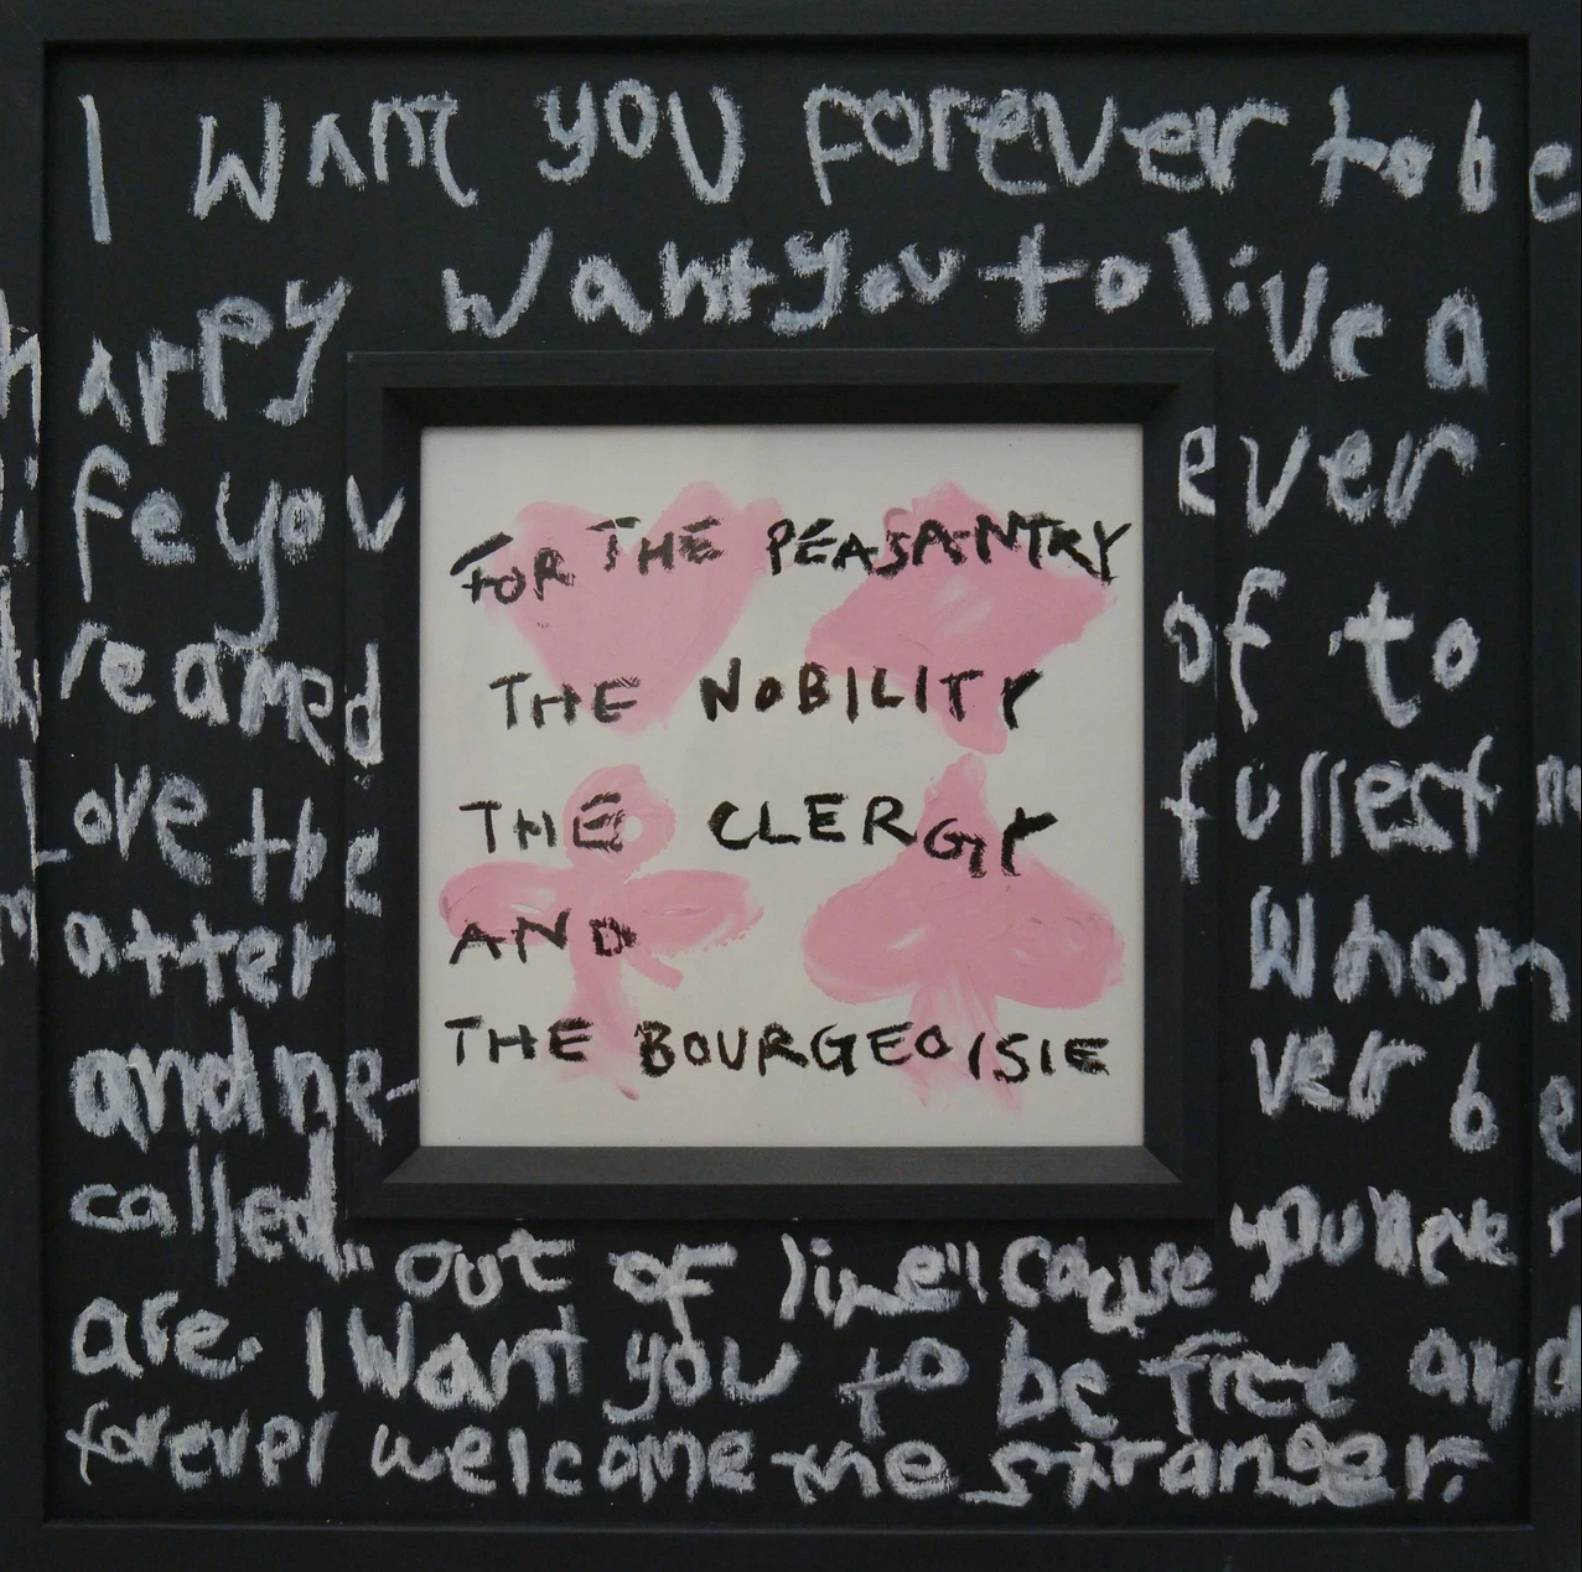 I Want you forever to be
happy Want you to live a
life you ever
dreamed of to
Love the fullest no
matter Whom
and ne- ver be
called "out of line" cause you never
are. I Want you to be free and
forever welcome the stranger.
FOR THE PEASANTRY
THE NOBILITY
THE CLERGY
AND
THE BOURGEOISIE